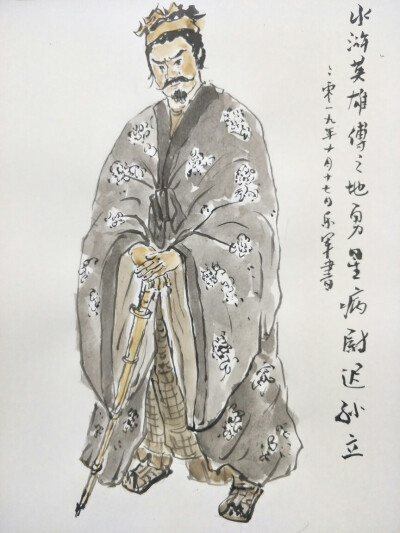 水浒英雄傅之地勇星病尉迟孙立
二零一九年十月十七日乐军画